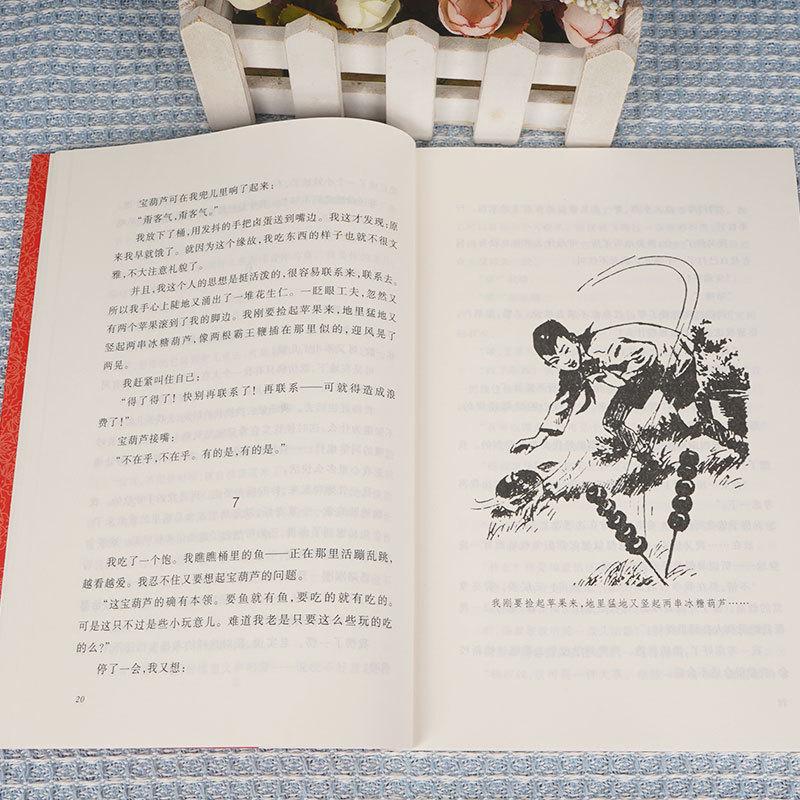 宝葫芦可在我兜儿里响了起来：
“甭客气，甭客气。”
我放下了桶，用发抖的手把卤蛋送到嘴边。我这才发现：原
来我早就饿了。就因为这个缘故，我吃东西的样子也就不很文
雅，不大注意礼貌了。
并且，我这个人的思想是挺活泼的，很容易联系来，联系去。
所以我手心上陡地又涌出了一堆花生仁。一眨眼工夫，忽然又
有两个苹果滚到了我的脚边。我刚要捡起苹果来，地里猛地又
竖起两串冰糖葫芦，像两根霸王鞭插在那里似的，迎风晃了
两晃。
我赶紧叫住自己：
“得了得了！快别再联系了！再联系——可就得造成浪
费了！”
宝葫芦接嘴：
“不在乎，不在乎。有的是，有的是。”
7
我吃了一个饱。我瞧瞧桶里的鱼——正在那里活蹦乱跳，
越看越爱。我忍不住又要想起宝葫芦的问题。
“这宝葫芦的确有本领。要鱼就有鱼，要吃的就有吃的。
可是这只不过是些小玩意儿。难道我老是只要这么些玩的吃
的么？”
停了一会，我又想：
20
我刚要捡起苹果来，地里猛地又竖起两串冰糖葫芦……